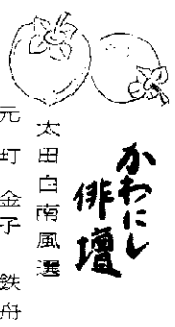 かわにし
俳壇
太田白南風選
元町 金子 鉄舟